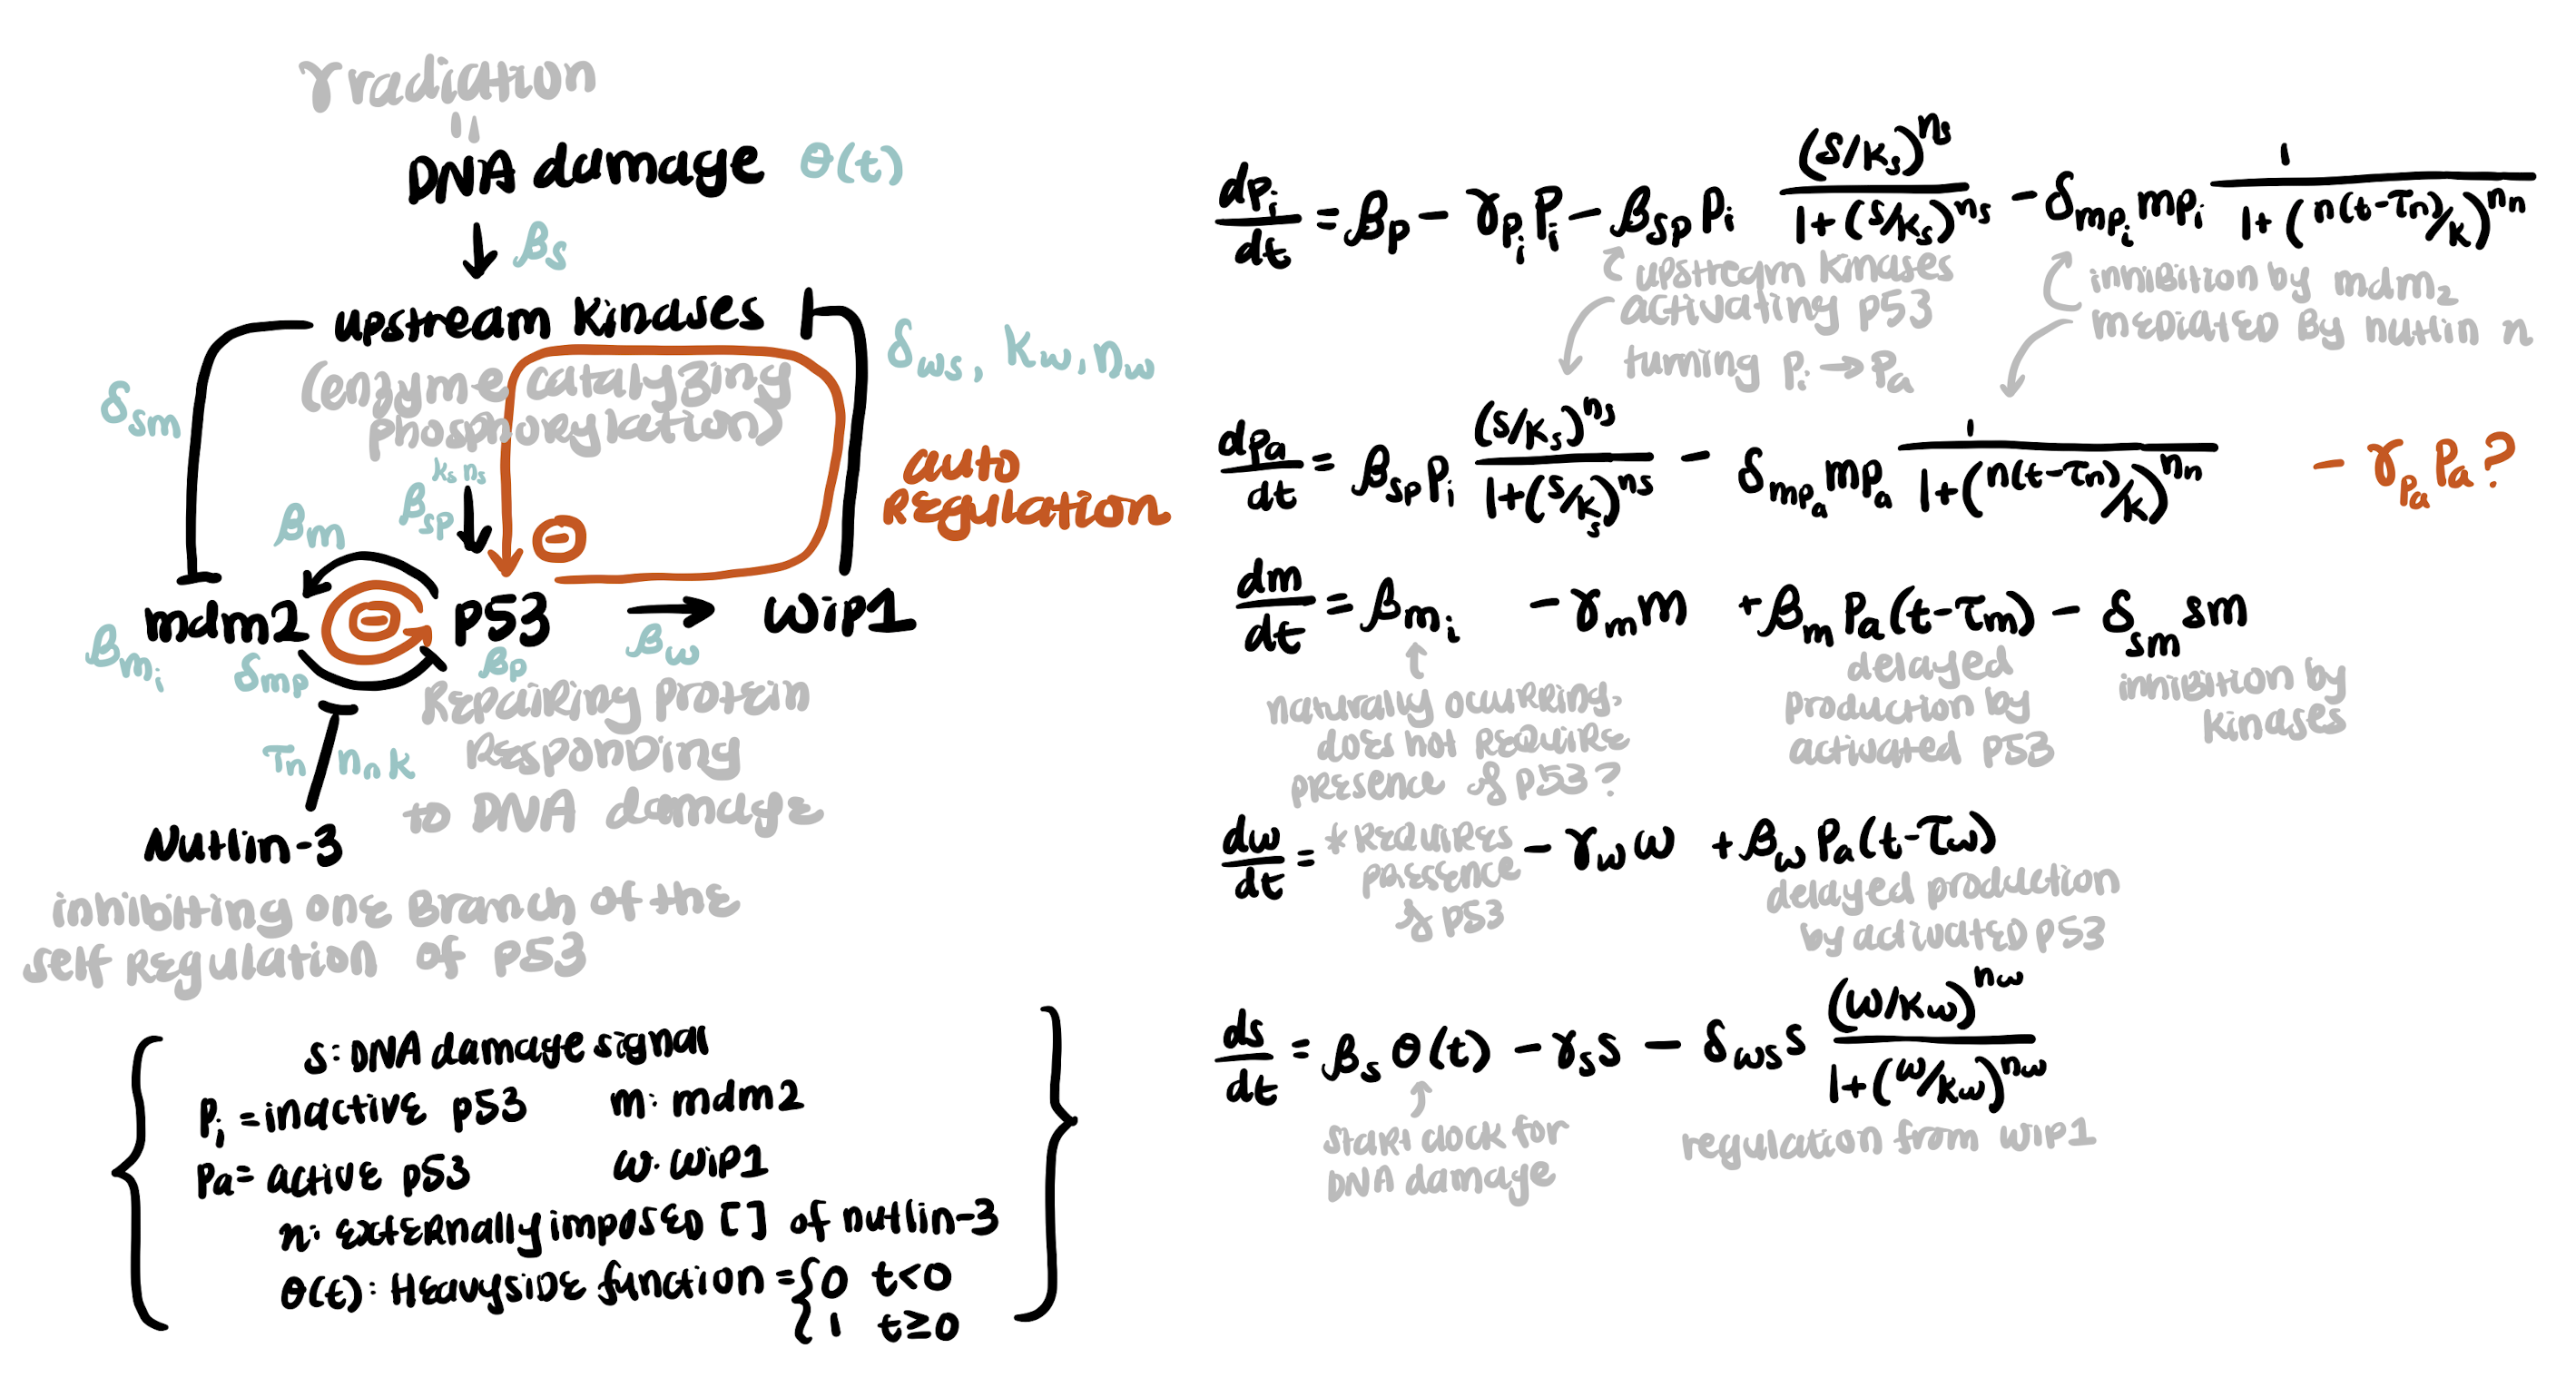 γ radiation
"
DNA damage θ(t)
↓ βs
upstream kinases
(enzyme catalyzing
phosphorylation)
δsm
δws, Kw, nw
auto
Regulation
ks ns
βsp
βm
⊖
mdm2 ⊖ p53 → Wip1
βmi δmp βp βw
Repairing protein
Responding
to DNA damage
τn nn k
Nutlin-3
inhibiting one Branch of the
self Regulation of p53
s: DNA damage signal
Pi = inactive p53 m: mdm2
Pa = active p53 w: Wip1
n: externally imposed [ ] of nutlin-3
θ(t): Heavyside function = {0 t<0
{1 t≥0
dpi/dt = βp − γpi Pi − βsp Pi (s/ks)^ns / 1+(s/ks)^ns − δmpi mpi 1 / 1+(n(t-τn)/k)^nn
upstream kinases
activating p53
turning Pi → Pa
inhibition by mdm2
mediated By nutlin n
dpa/dt = βsp Pi (s/ks)^ns / 1+(s/ks)^ns − δmpa mpa 1 / 1+(n(t-τn)/k)^nn − γpa Pa?
dm/dt = βmi − γm m + βm Pa(t-τm) − δsm sm
naturally ocurring,
does not require
presence of p53?
delayed
production by
activated p53
inhibition by
kinases
dw/dt = *Requires − γw w + βw Pa(t-τw)
presence
of p53
delayed production
by activated p53
ds/dt = βs θ(t) − γs s − δws s (w/kw)^nw / 1+(w/kw)^nw
start clock for
DNA damage
regulation from wip1